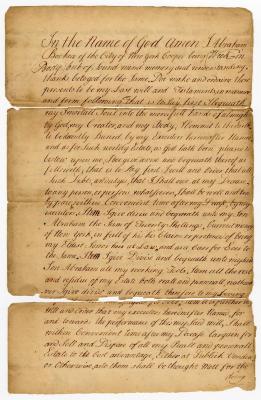 In the Name of God Amen I Abraham
of the City of New York Cooper being Weak in
Body but of Sound mind memory and understanding
thanks be to god for the Same, Do make and ordaine these
presents to be my Last will and Testament, in manner
and form following That is to Say first I bequeath
my Immortall Soul into the mercifull hands of almigh-
ty God my Creator, and my Body, I Commit to the Earth
to be decently Buried by my Executors hereinafter Named
and as for Such worldly Estate, as God hath been pleased to
bestow upon me, I do give devise and bequeath thereof as
followeth, that is to Say first I will and Order that all
Such Debts, and dutys, that I Shall owe at my Decease
to any person, or persons whatsoever, Shall be well and truly
by paid, within Convenient time after my Decease, by my
executors, Item I give devise and bequeath unto my Son
Abraham the Sum of Twenty Shillings, Currant money
of New York, in full of his pretensions of being
my Eldest Son or heir at Law, and in Bar for Ever to
the Same, Item I give Devise and bequeath unto my Said
Son Abraham all my working tools, Item all the rest
and residue of my Estate both reall and personall, whatsoe-
ver I give devise and bequeath
Will and Order that my executors hereinafter Named, for
and towards the performance of this my Said will, Shall
within Convenient time after my Decease, Bargain for
and Sell and Dispose of all my Reall and personall
Estate to the best advantage, Either at Publick Vendue
or Otherwise, as to them shall be thought Well for the